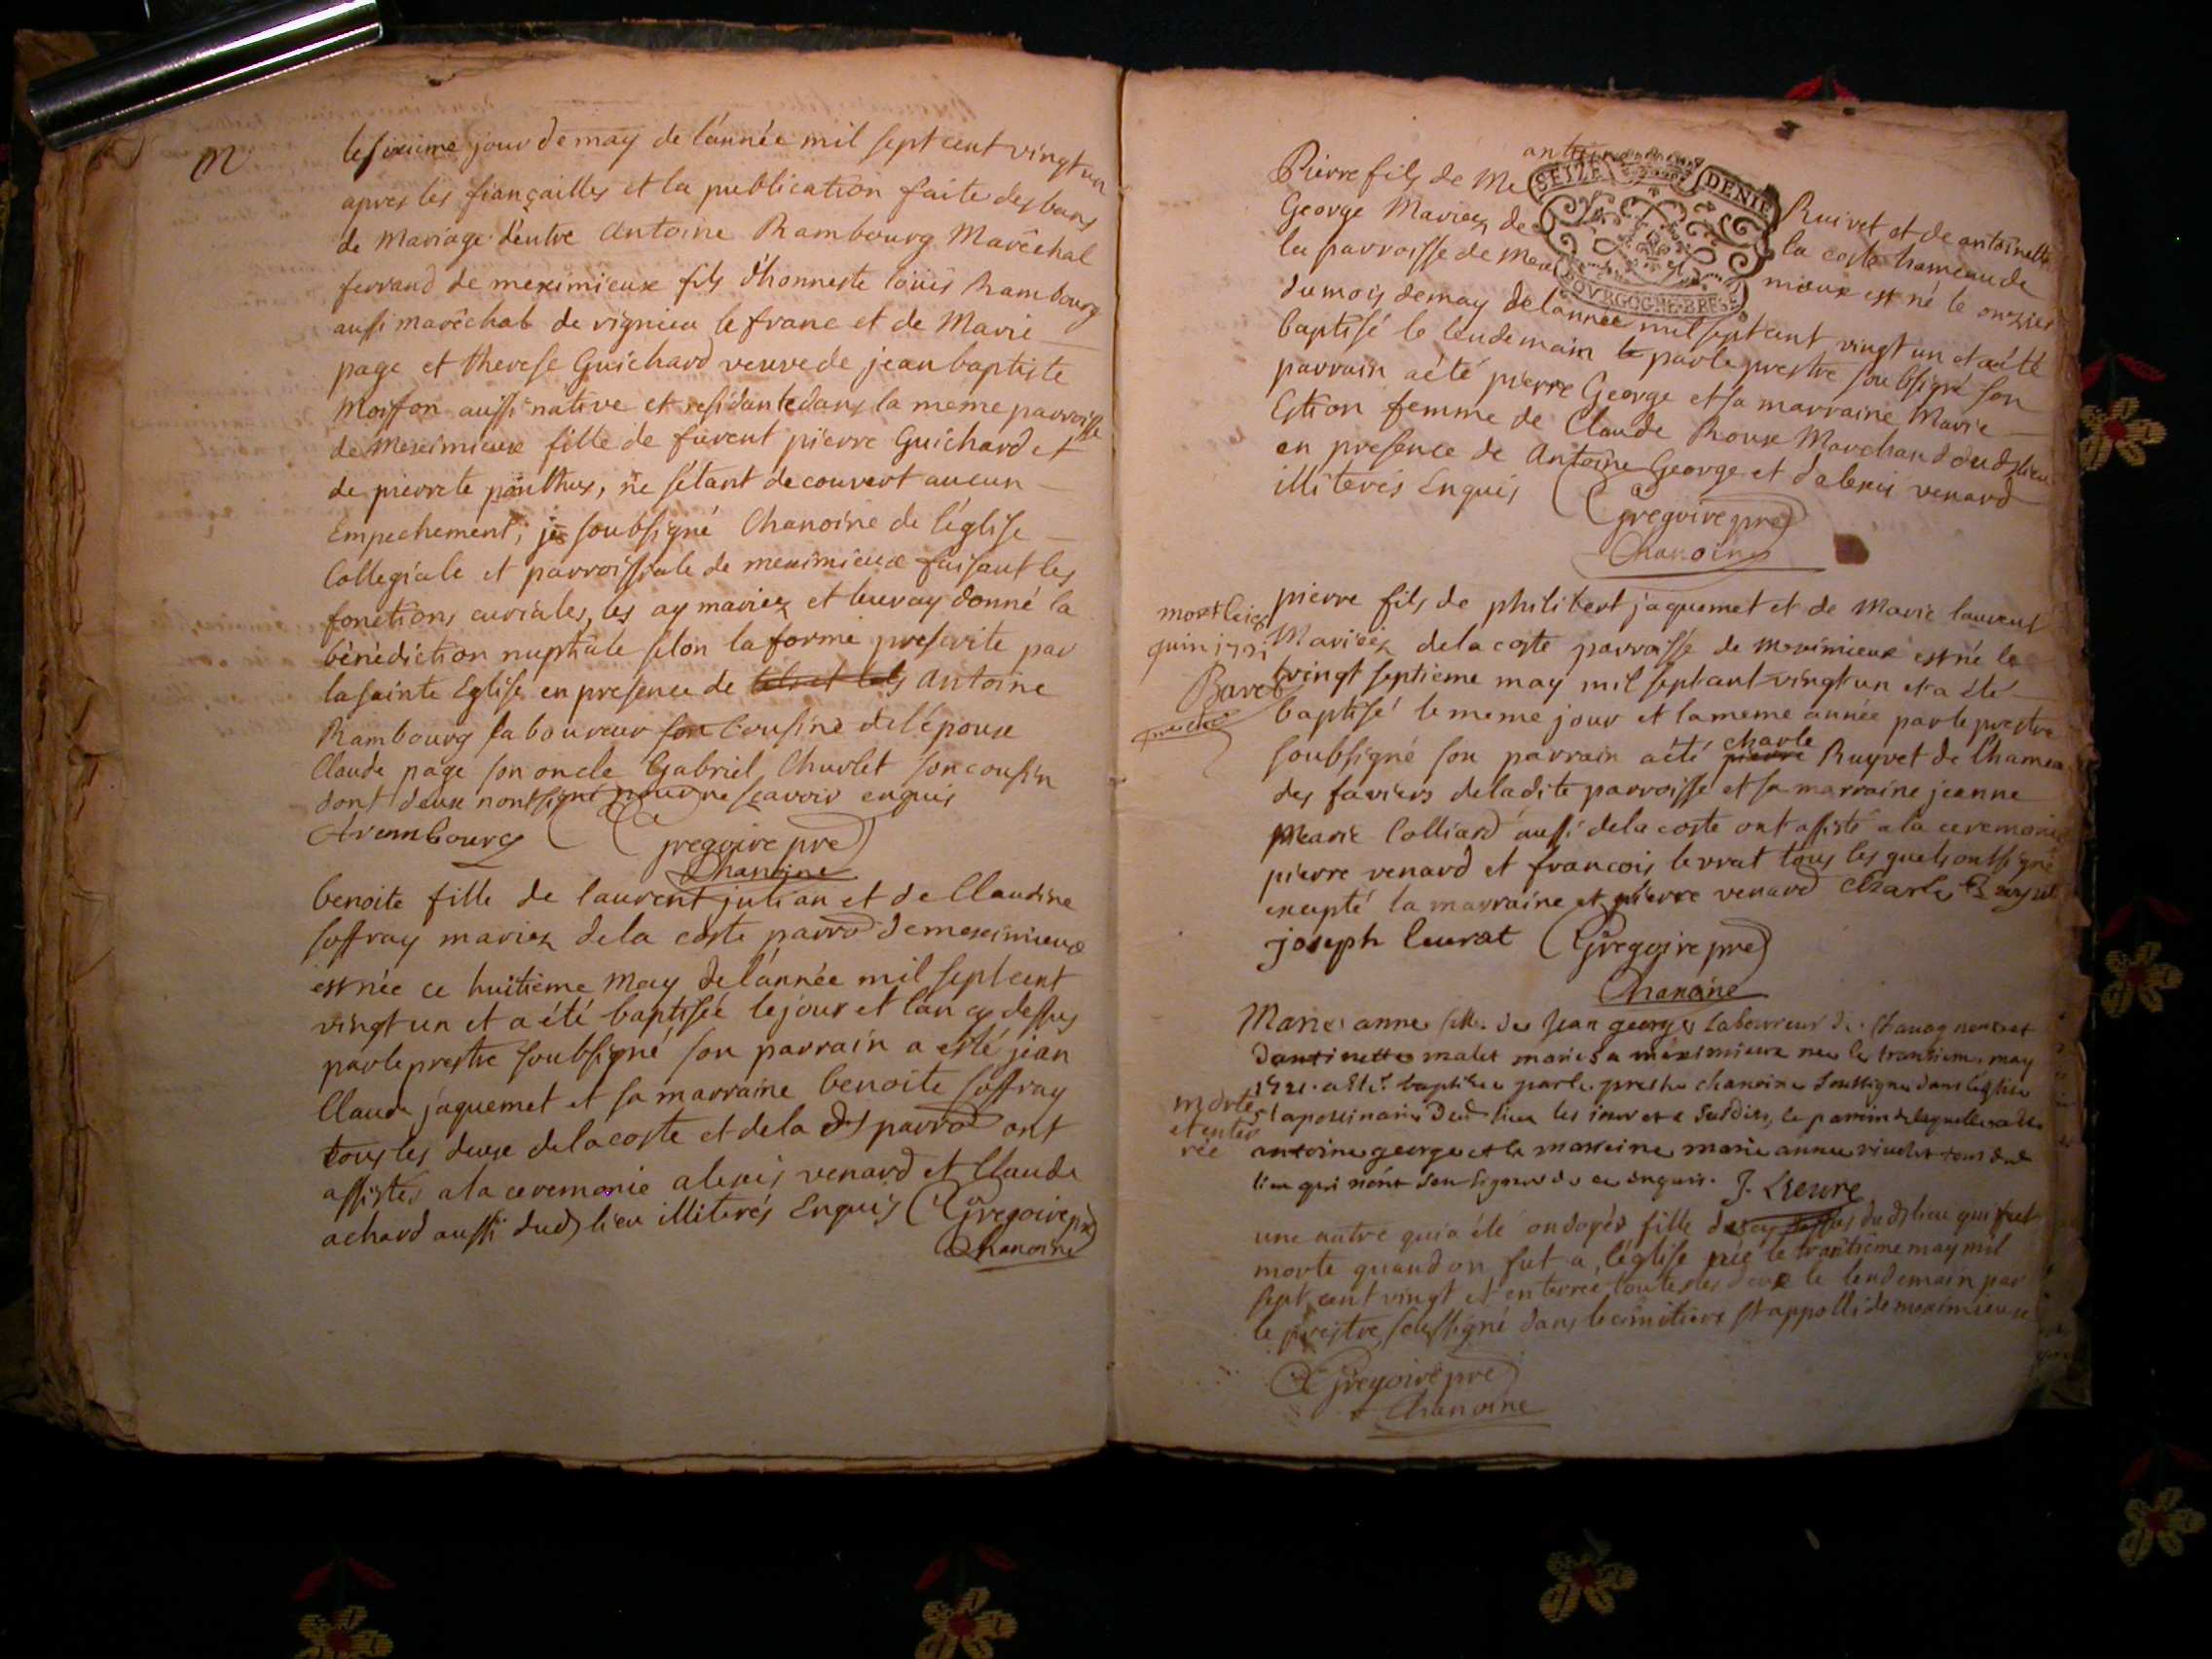 M
le sixieme jour de may de l'année mil sept cent vingt un
apres les fiançailles et la publication faite des bans
de Mariage d'entre Antoine Rambourg Marêchal
ferrand de meximieux fils d'honneste loüis Rambourg
aussi marêchal de vignieu le franc et de Marie
page et therese Guichard veuve de jean baptiste
Moisson aussi native et residante dans la meme parroisse
de Meximieux fille de furent pierre Guichard et
de pierrete ponthus, ne sétant decouvert aucun
Empechement, je soubsigné Chanoine de l'église
Collegiale et parroissiale de meximieux faisant les
fonctions curiales, les ay mariez et leur ay donné la
bénédiction nuptiale selon la forme prescrite par
la sainte Eglise en presence de Antoine
Rambourg laboureur cousine de l'épouse
Claude page son oncle Gabriel Churlet son cousin
dont deux nont signé pour ne sçavoir enquis
Arembourg Gregoire pre
Chanoine
benoite fille de laurent julian et de Claudine
soffray mariez de la coste parro de meximieux
est née ce huitieme May de l'année mil sept cent
vingt un et a été baptisée le jour et l'an cy dessus
par le prestre soubsigné son parrain a esté jean
Claude jaquemet et sa marraine benoite soffray
tous les deux de la coste et de la dt parro ont
assistés a la ceremonie alexis venard et Claude
achard aussi dud lieu illiterés Enquis Gregoire pre
Chanoine
Pierre fils de Me Ruivet et de antoinette
SEIZE DENIE
George Mariez de la coste hameau de
la parroisse de Mexi mieux est né le onzie
BOVRGOGNE BRESSE
du mois de may de l'année mil sept cent vingt un et a été
baptisé le lendemain par le prestre soubsigné son
parrain a été pierre George et sa marraine Marie
Ction femme de Claude Roux Marchand dud lieu
en presence de Antoine George et d'alexis venard
illiterés Enquis Gregoire pre
Chanoine
mort le
juin 1791
pierre fils de philibert jaquemet et de Marie laurent
Mariez de la coste parroisse de Meximieux est né le
vingt septieme may mil sept cent vingt un et a été
baptisé le meme jour et la meme année par le prestre
charle
soubsigné son parrain a été pierre Ruyvet de Chamea
des faviers de la dite parroisse et sa marraine jeanne
Marie Colliard aussi de la coste ont assisté a la ceremonie
pierre venard et francois levrat tous les quels ont signé
excepté la marraine et pierre venard Charle Ruyvet
joseph leurat Gregoire pre
Chanoine
Marie anne fille de Jean george laboureur de
d'antoinette malet mariés a méximieux nee le trantieme may
1721 a été baptisée par le prestre chanoine soussigné dans l'église
morte
et enter
rée
st apollinaire dud lieu les jour et a susdits, le parrain de laquelle a été
antoine george et la marraine marie anne tous dud
lieu qui n'ont sceu signer de ce enquis. J. Lieure
une autre qui a été ondoyée fille dud lieu qui fut
morte quand on fut a l'église née le trantieme may mil
sept cent vingt et enterrée toutes les deux le lendemain par
le prestre soussigné dans le cimitiere St appolli de meximieux
Gregoire pre
Chanoine